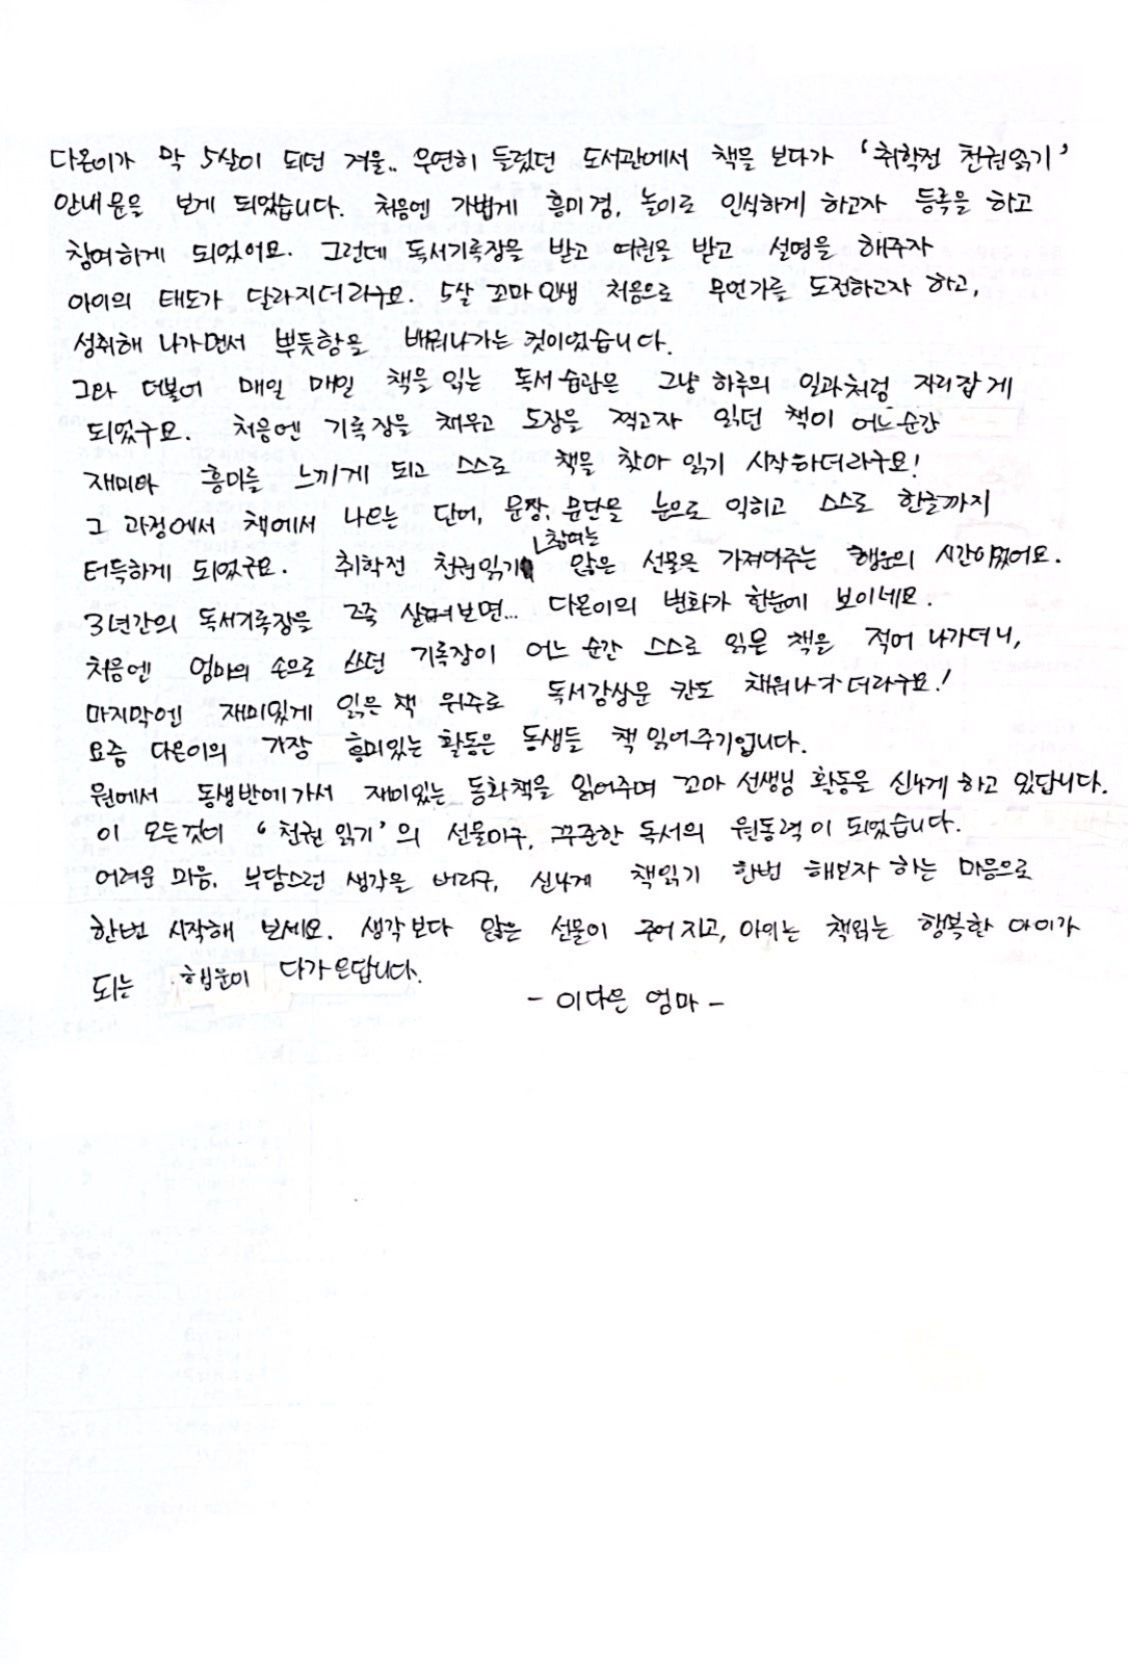 다온이가 막 5살이 되던 겨울.. 우연히 들렀던 도서관에서 책을 보다가 '취학전 천권읽기'
안내문을 보게 되었습니다. 처음엔 가볍게 흥미겸, 놀이로 인식하게 하고자 등록을 하고
참여하게 되었어요. 그런데 독서기록장을 받고 여권을 받고 설명을 해주자
아이의 태도가 달라지더라구요. 5살 꼬마인생 처음으로 무언가를 도전하고자 하고,
성취해 나가면서 뿌듯함을 배워나가는 것이었습니다.
그와 더불어 매일 매일 책을 읽는 독서습관은 그냥 하루의 일과처럼 자리잡게
되었구요. 처음엔 기록장을 채우고 도장을 찍고자 읽던 책이 어느순간
재미와 흥미를 느끼게 되고 스스로 책을 찾아 읽기 시작하더라구요!
그 과정에서 책에서 나오는 단어, 문장, 문단을 눈으로 익히고 스스로 한글까지
터득하게 되었구요. 취학전 천권읽기 참여는 많은 선물을 가져다주는 행운의 시간이었어요.
3년간의 독서기록장을 쭉 살펴보면... 다온이의 변화가 한눈에 보이네요.
처음엔 엄마의 손으로 쓰던 기록장이 어느 순간 스스로 읽은 책을 적어 나가더니,
마지막엔 재미있게 읽은 책 위주로 독서감상문 칸도 채워나가더라구요!
요즘 다온이의 가장 흥미있는 활동은 동생들 책 읽어주기입니다.
원에서 동생반에가서 재미있는 동화책을 읽어주며 꼬마 선생님 활동을 신나게 하고 있답니다.
이 모든것이 '천권 읽기'의 선물이구, 꾸준한 독서의 원동력이 되었습니다.
어려운 마음, 부담스런 생각을 버리구, 신나게 책읽기 한번 해보자 하는 마음으로
한번 시작해 보세요. 생각보다 많은 선물이 주어지고, 아이는 책읽는 행복한 아이가
되는 행운이 다가온답니다.
- 이다온 엄마 -